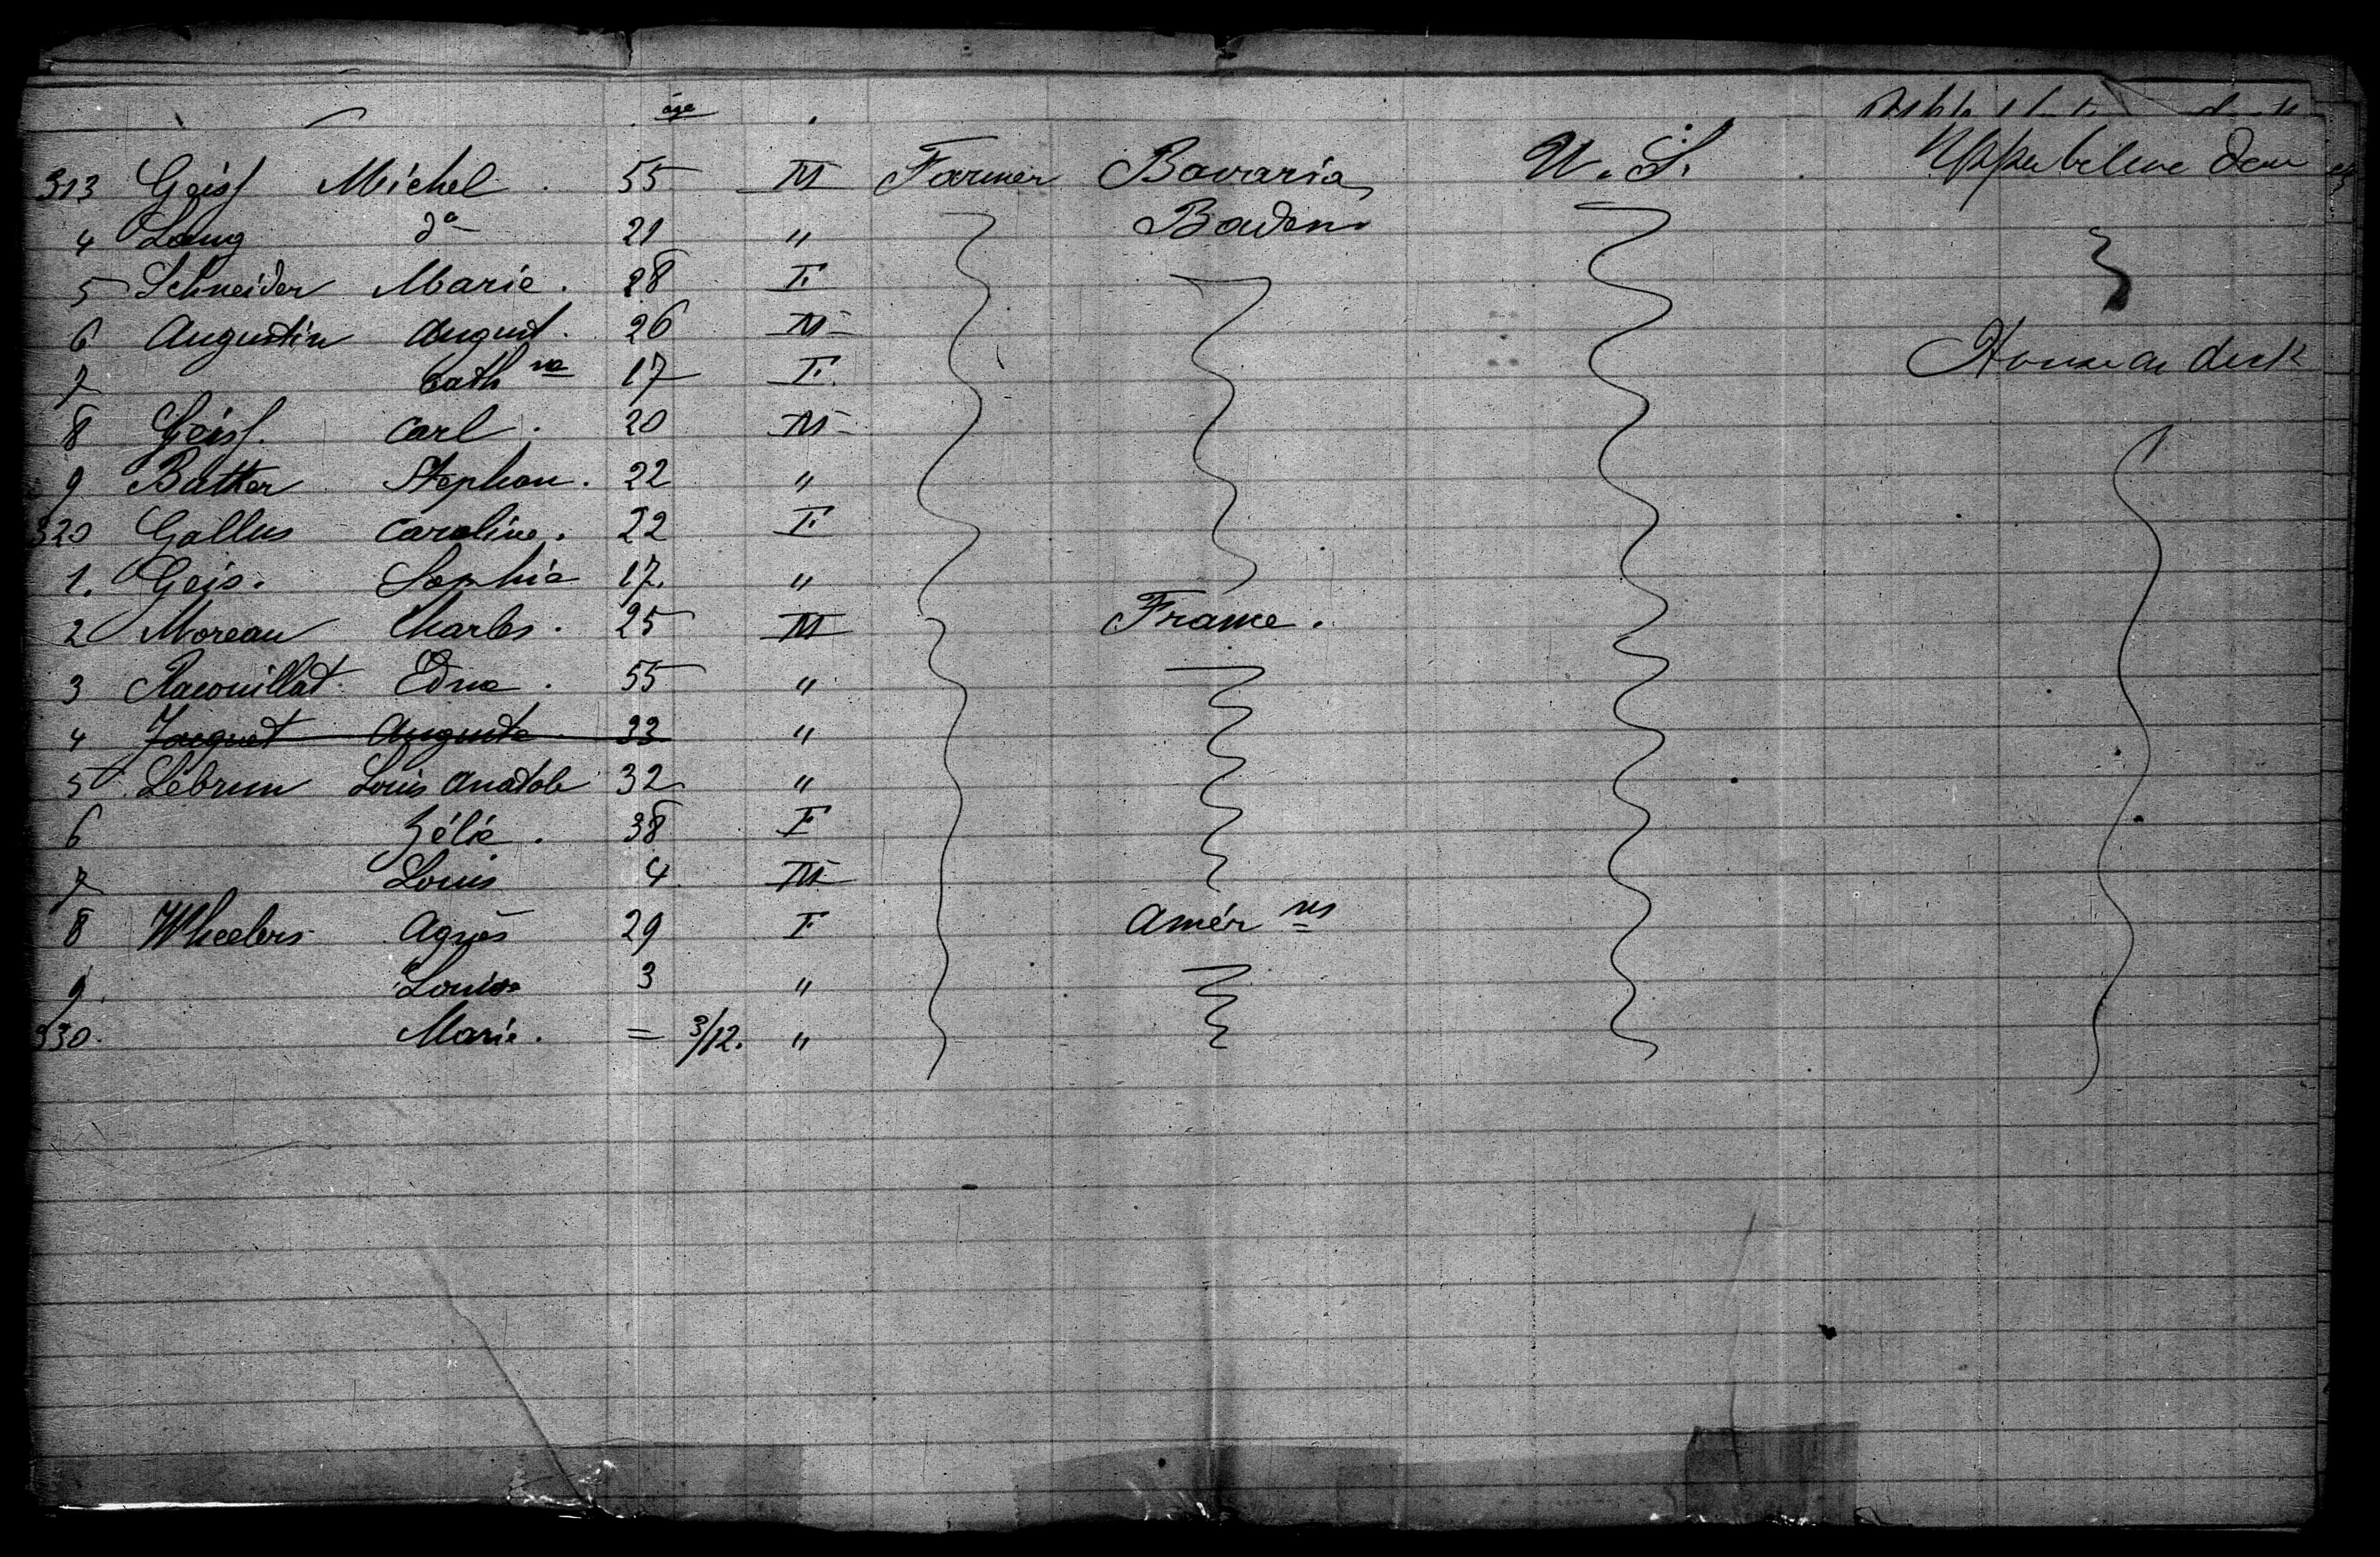 age
313 Geiss Michel . 55 M Farmer Bavaria U. S. Upper
4 Lang do 21 " Baden
5 Schneider Marie . 28 F
6 Augustin August . 26 M
7 Cath na 17 F. House on deck
8 Geiss . Carl . 20 M
9 Butter Stephan . 22 "
320 Gallus Caroline . 22 F
1. Geis . Sophie 17. "
2 Moreau Charles . 25 M France .
3 Racouillat Edna . 55 "
4 Jacquet Auguste 33 "
5 Lebrun Louis Anatole 32 "
6 Zélie . 38 F
7 Louis 4 M
8 Wheelers Agnès 29 F Amér ns
9 Louisa 3 "
330. Marie . = 3/12. "